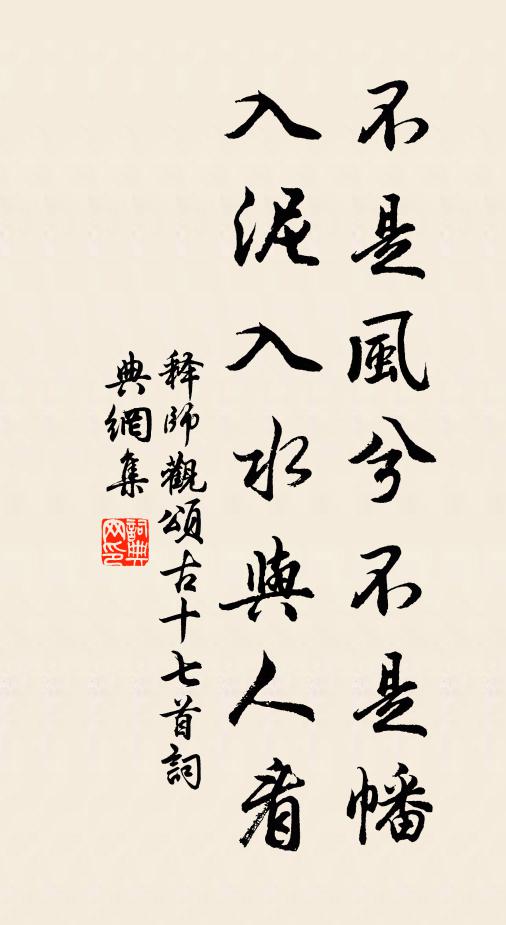 不是風兮不是幡
入泥入水與人看
释師觀頌古十七首詞
典網集
詞典
网印